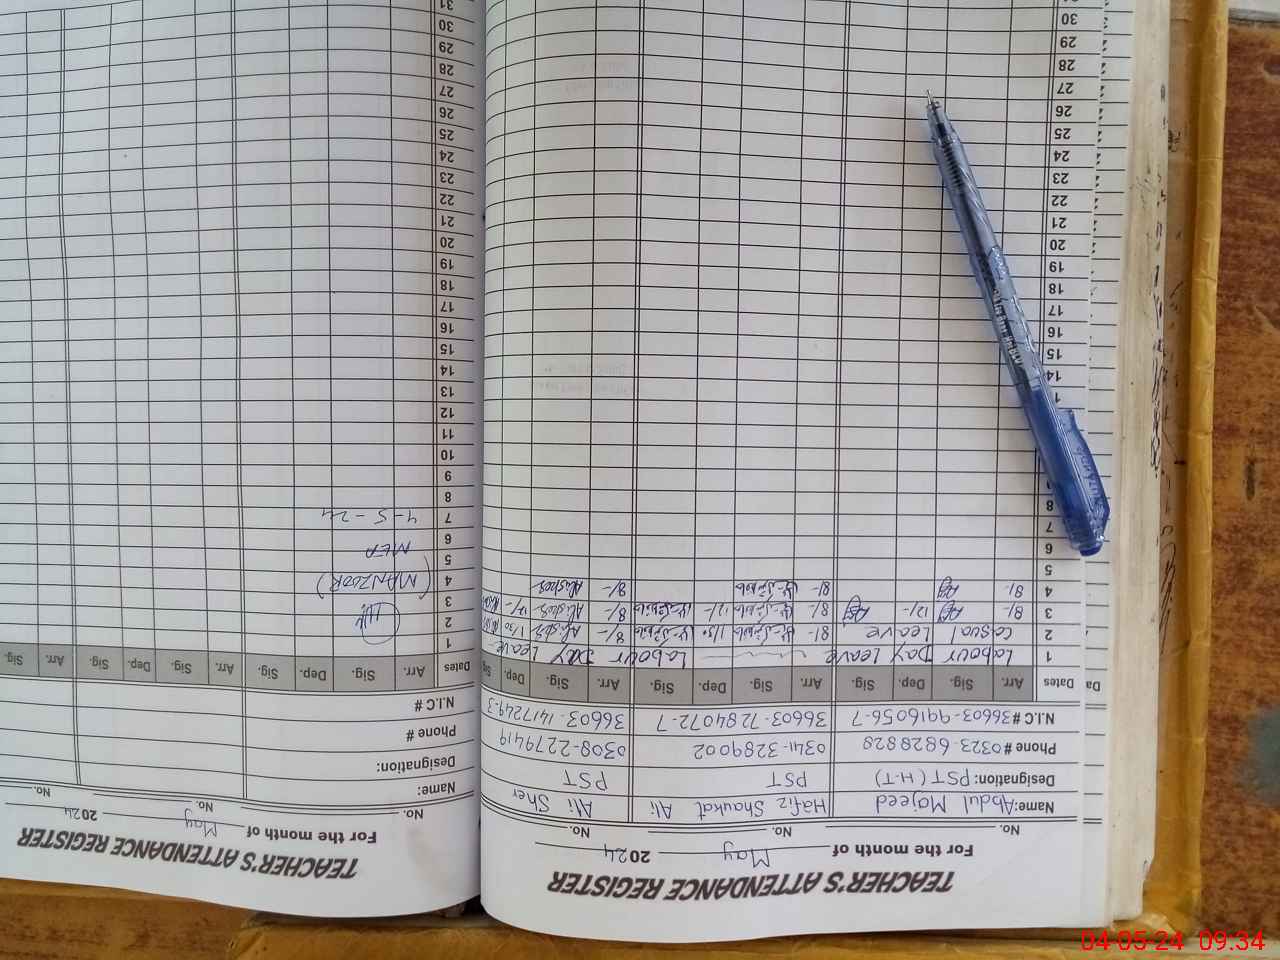 TEACHER'S ATTENDANCE REGISTER
For the month of May 2024
No. No. No.
Name: Abdul Majeed Hafiz Shaukat Ali Ali Sher
Designation: PST (H-T) PST PST
Phone # 0323-6828828 0341-3289002 0308-2279419
N.I.C # 36603-9916056-7 36603-7284072-7 36603-1417249-3
Dates Arr. Sig. Dep. Sig. Arr. Sig. Dep. Sig. Arr. Sig. Dep. Sig.
1 Labour Day Leave Labour Day Leave
2 Casual Leave 8/- 1/30 8/- 1/30
3 8/- 12/- 8/- 12/- 8/- 12/-
4 8/- 8/- 8/-
5
6
7
8
14
15
16
17
18
19
20
21
22
23
24
25
26
27
28
29
30
TEACHER'S ATTENDANCE REGISTER
For the month of May 2024
No. No. No.
Name:
Designation:
Phone #
N.I.C #
Dates Arr. Sig. Dep. Sig. Arr. Sig. Dep. Sig. Arr. Sig.
1
2
3
4 (MANZOOR)
5 MEA
6
7 4-5-24
8
9
10
11
12
13
14
15
16
17
18
19
20
21
22
23
24
25
26
27
28
29
30
31
04-05-24 09:34